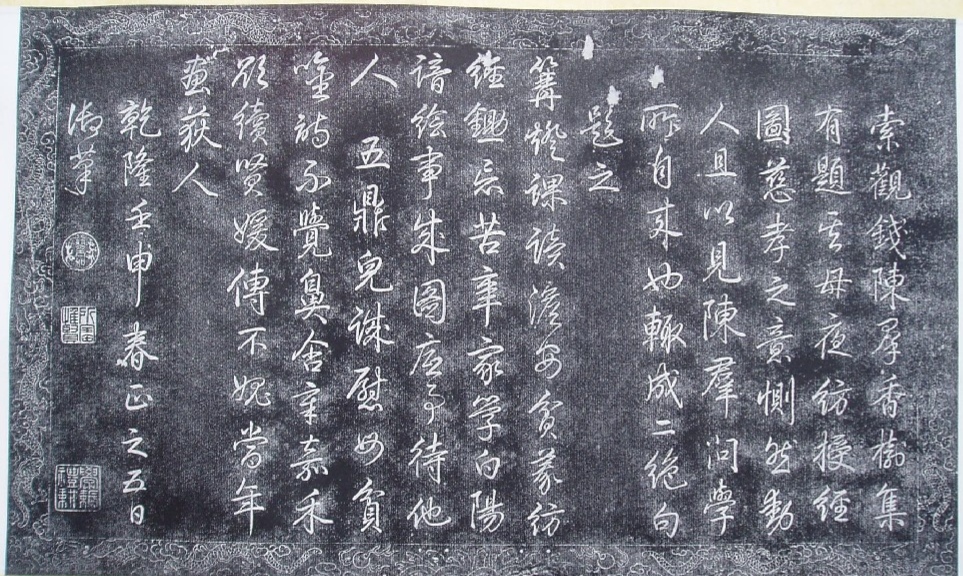 索觀錢陳羣香樹集
有題其母夜紡授經
圖慈孝之意惻然動
人且以見陳羣問學
所自來也輒成二絕句
題之
篝燈課讀澹安貧義紡
經鋤忘苦辛家學白陽
諳繪事成圖底事待他
人 五鼎兒誠慰母貧
吟詩不覺鼻含辛嘉禾
欲續賢媛傳不愧當年
畫荻人
乾隆壬申春正之五日
御筆